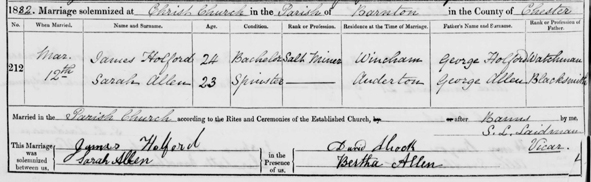 1882. Marriage solemnized at Christ Church in the Parish of Barnton in the County of Chester
No. When Married. Name and Surname. Age Condition. Rank or Profession. Residence at the Time of Marriage. Father's Name and Surname. Rank or Profession of Father.
212 Mar. 12th James Holford 24 Bachelor Salt Miner Wincham George Holford Watchman
Sarah Allen 23 Spinster — Anderton George Allen Blacksmith
Married in the Parish Church according to the Rites and Ceremonies of the Established Church, by after Banns by me,
S. L. Laidman
Vicar.
This Marriage was solemnized between us, James Holford Sarah Allen in the Presence of us, David Bertha Allen